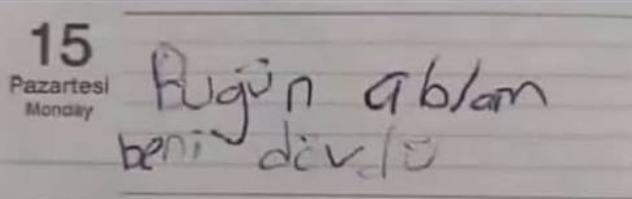 15
Pazartesi
Monday
Bugün ablam
beni dövdü